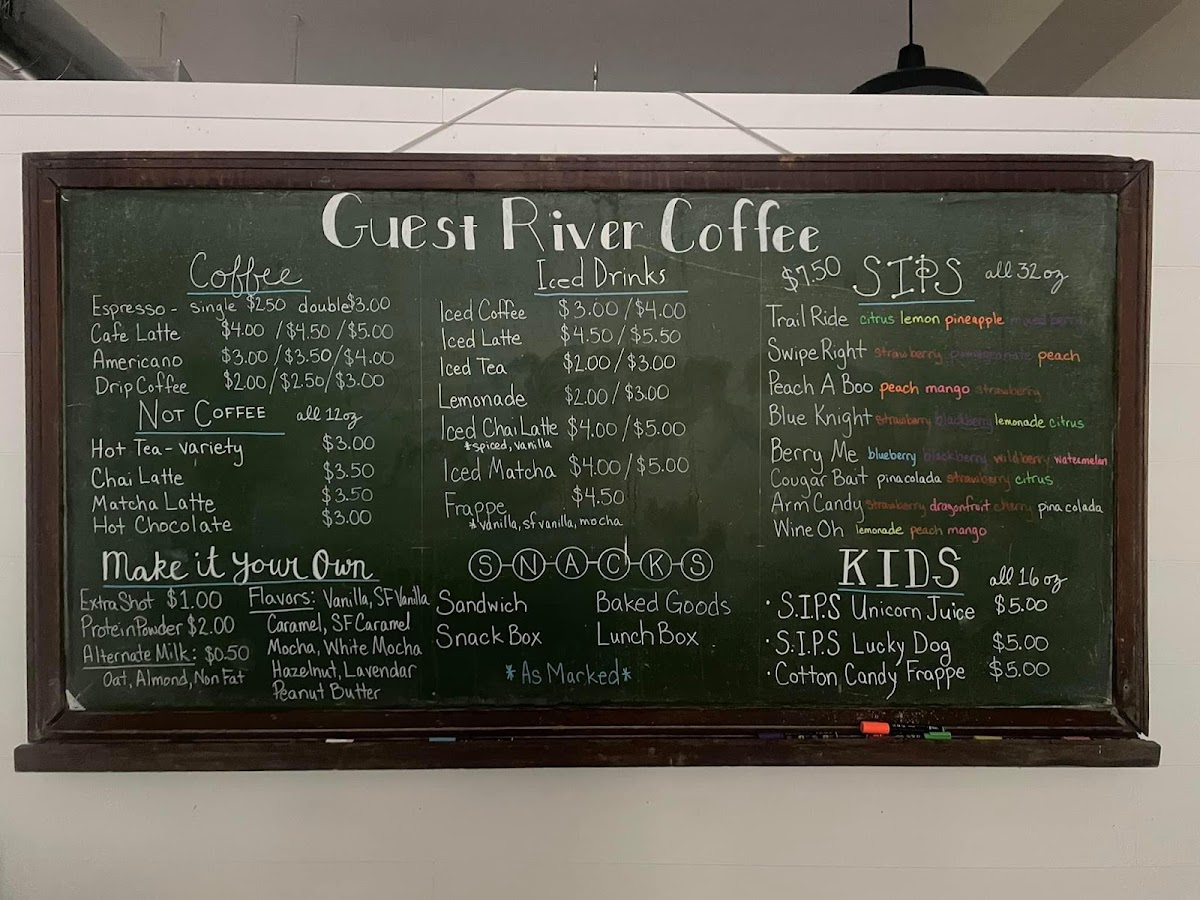 Guest River Coffee
Coffee
Espresso - single $2.50 double $3.00
Cafe Latte $4.00 / $4.50 / $5.00
Americano $3.00 / $3.50 / $4.00
Drip Coffee $2.00 / $2.50 / $3.00
NOT COFFEE all 12oz
Hot Tea - variety $3.00
Chai Latte $3.50
Matcha Latte $3.50
Hot Chocolate $3.00
Make it Your Own
Extra Shot $1.00
Protein Powder $2.00
Alternate Milk: $0.50
Oat, Almond, Non Fat
Flavors: Vanilla, SF Vanilla
Caramel, SF Caramel
Mocha, White Mocha
Hazelnut, Lavendar
Peanut Butter
Iced Drinks
Iced Coffee $3.00 / $4.00
Iced Latte $4.50 / $5.50
Iced Tea $2.00 / $3.00
Lemonade $2.00 / $3.00
Iced Chai Latte $4.00 / $5.00
*spiced, vanilla
Iced Matcha $4.00 / $5.00
Frappe $4.50
*vanilla, sf vanilla, mocha
SNACKS
Sandwich Baked Goods
Snack Box Lunch Box
*As Marked*
$7.50 SIPS all 32oz
Trail Ride citrus lemon pineapple mixed berry
Swipe Right strawberry pomegranate peach
Peach A Boo peach mango strawberry
Blue Knight strawberry blackberry lemonade citrus
Berry Me blueberry blackberry wildberry watermelon
Cougar Bait pina colada strawberry citrus
Arm Candy strawberry dragonfruit cherry pina colada
Wine Oh lemonade peach mango
KIDS all 16oz
· S.I.P.S Unicorn Juice $5.00
· S.I.P.S Lucky Dog $5.00
· Cotton Candy Frappe $5.00